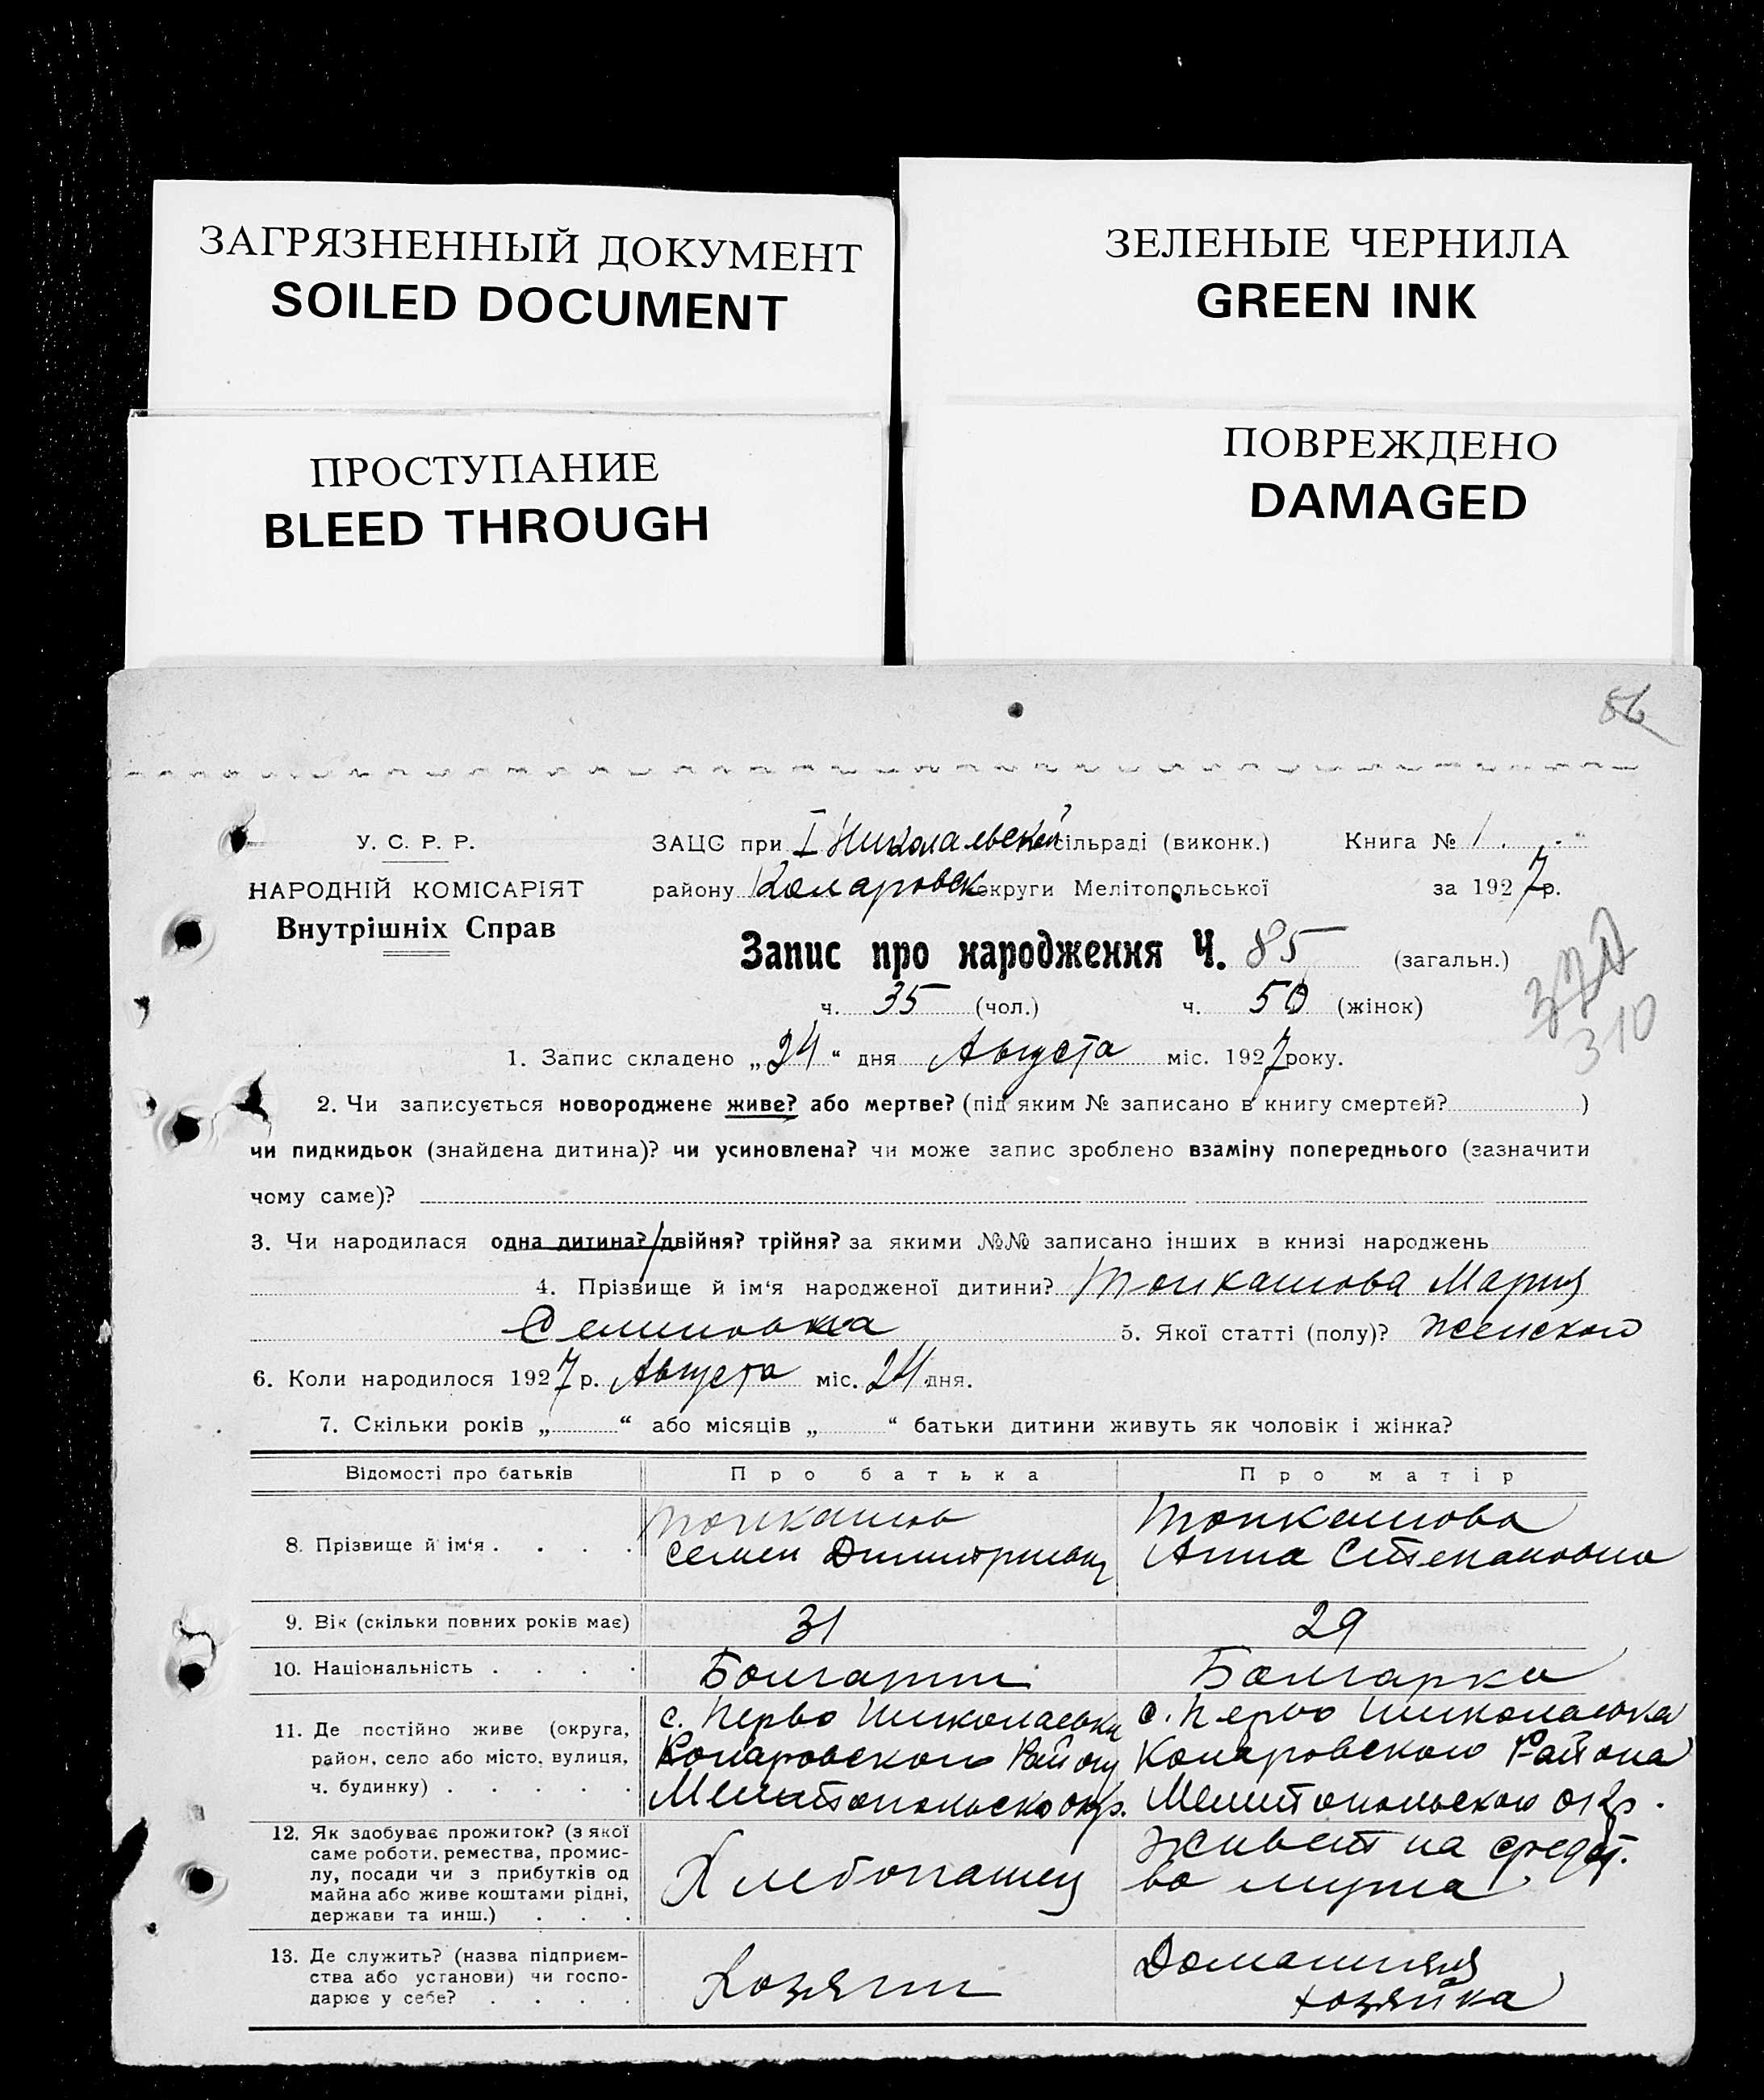 ЗАГРЯЗНЕННЫЙ ДОКУМЕНТ
SOILED DOCUMENT
ЗЕЛЕНЫЕ ЧЕРНИЛА
GREEN INK
ПРОСТУПАНИЕ
BLEED THROUGH
ПОВРЕЖДЕНО
DAMAGED
86
У. С. Р. Р.
НАРОДНІЙ КОМІСАРІЯТ
Внутрішніх Справ
ЗАЦС при I Николаевской сільраді (виконк.) Книга № 1
району Коларовск округи Мелітопольської за 1927 р.
Запис про народження Ч. 85 (загальн.)
ч. 35 (чол.) ч. 50 (жінок)
310
1. Запис складено „24“ дня Августа міс. 1927 року.
2. Чи записується новороджене живе? або мертве? (під яким № записано в книгу смертей? )
чи пидкидьок (знайдена дитина)? чи усиновлена? чи може запис зроблено взаміну попереднього (зазначити
чому саме)?
3. Чи народилася одна дитина? двійня? трійня? за якими №№ записано інших в книзі народжень
4. Прізвище й ім‘я народженої дитини? Топкашова Мария
Семеновна 5. Якої статті (полу)? женского
6. Коли народилося 1927 р. Августа міс. 24 дня.
7. Скільки років „ “ або місяців „ “ батьки дитини живуть як чоловік і жінка?
Відомості про батьків Про батька Про матір
8. Прізвище й ім‘я . . . .
Топкашов
Семен Димитриевич
Топкашова
Анна Степановна
9. Вік (скільки повних років має) 31 29
10. Національність . . . . Болгарин Болгарка
11. Де постійно живе (округа,
район, село або місто, вулиця,
ч. будинку) . . . . .
с. Перво Николаевка
Коларовского Району
Мелитопольско окр.
с. Перво Николаевка
Коларовского Района
Мелитопольского окр.
12. Як здобуває прожиток? (з якої
саме роботи, ремества, промис-
лу, посади чи з прибутків од
майна або живе коштами рідні,
держави та инш.) . . .
Хлебопашец
живет на средст.
во мужа
13. Де служить? (назва підприєм-
ства або установи) чи госпо-
дарює у себе? . . . .
Хозяин
Домашняя
хозяйка